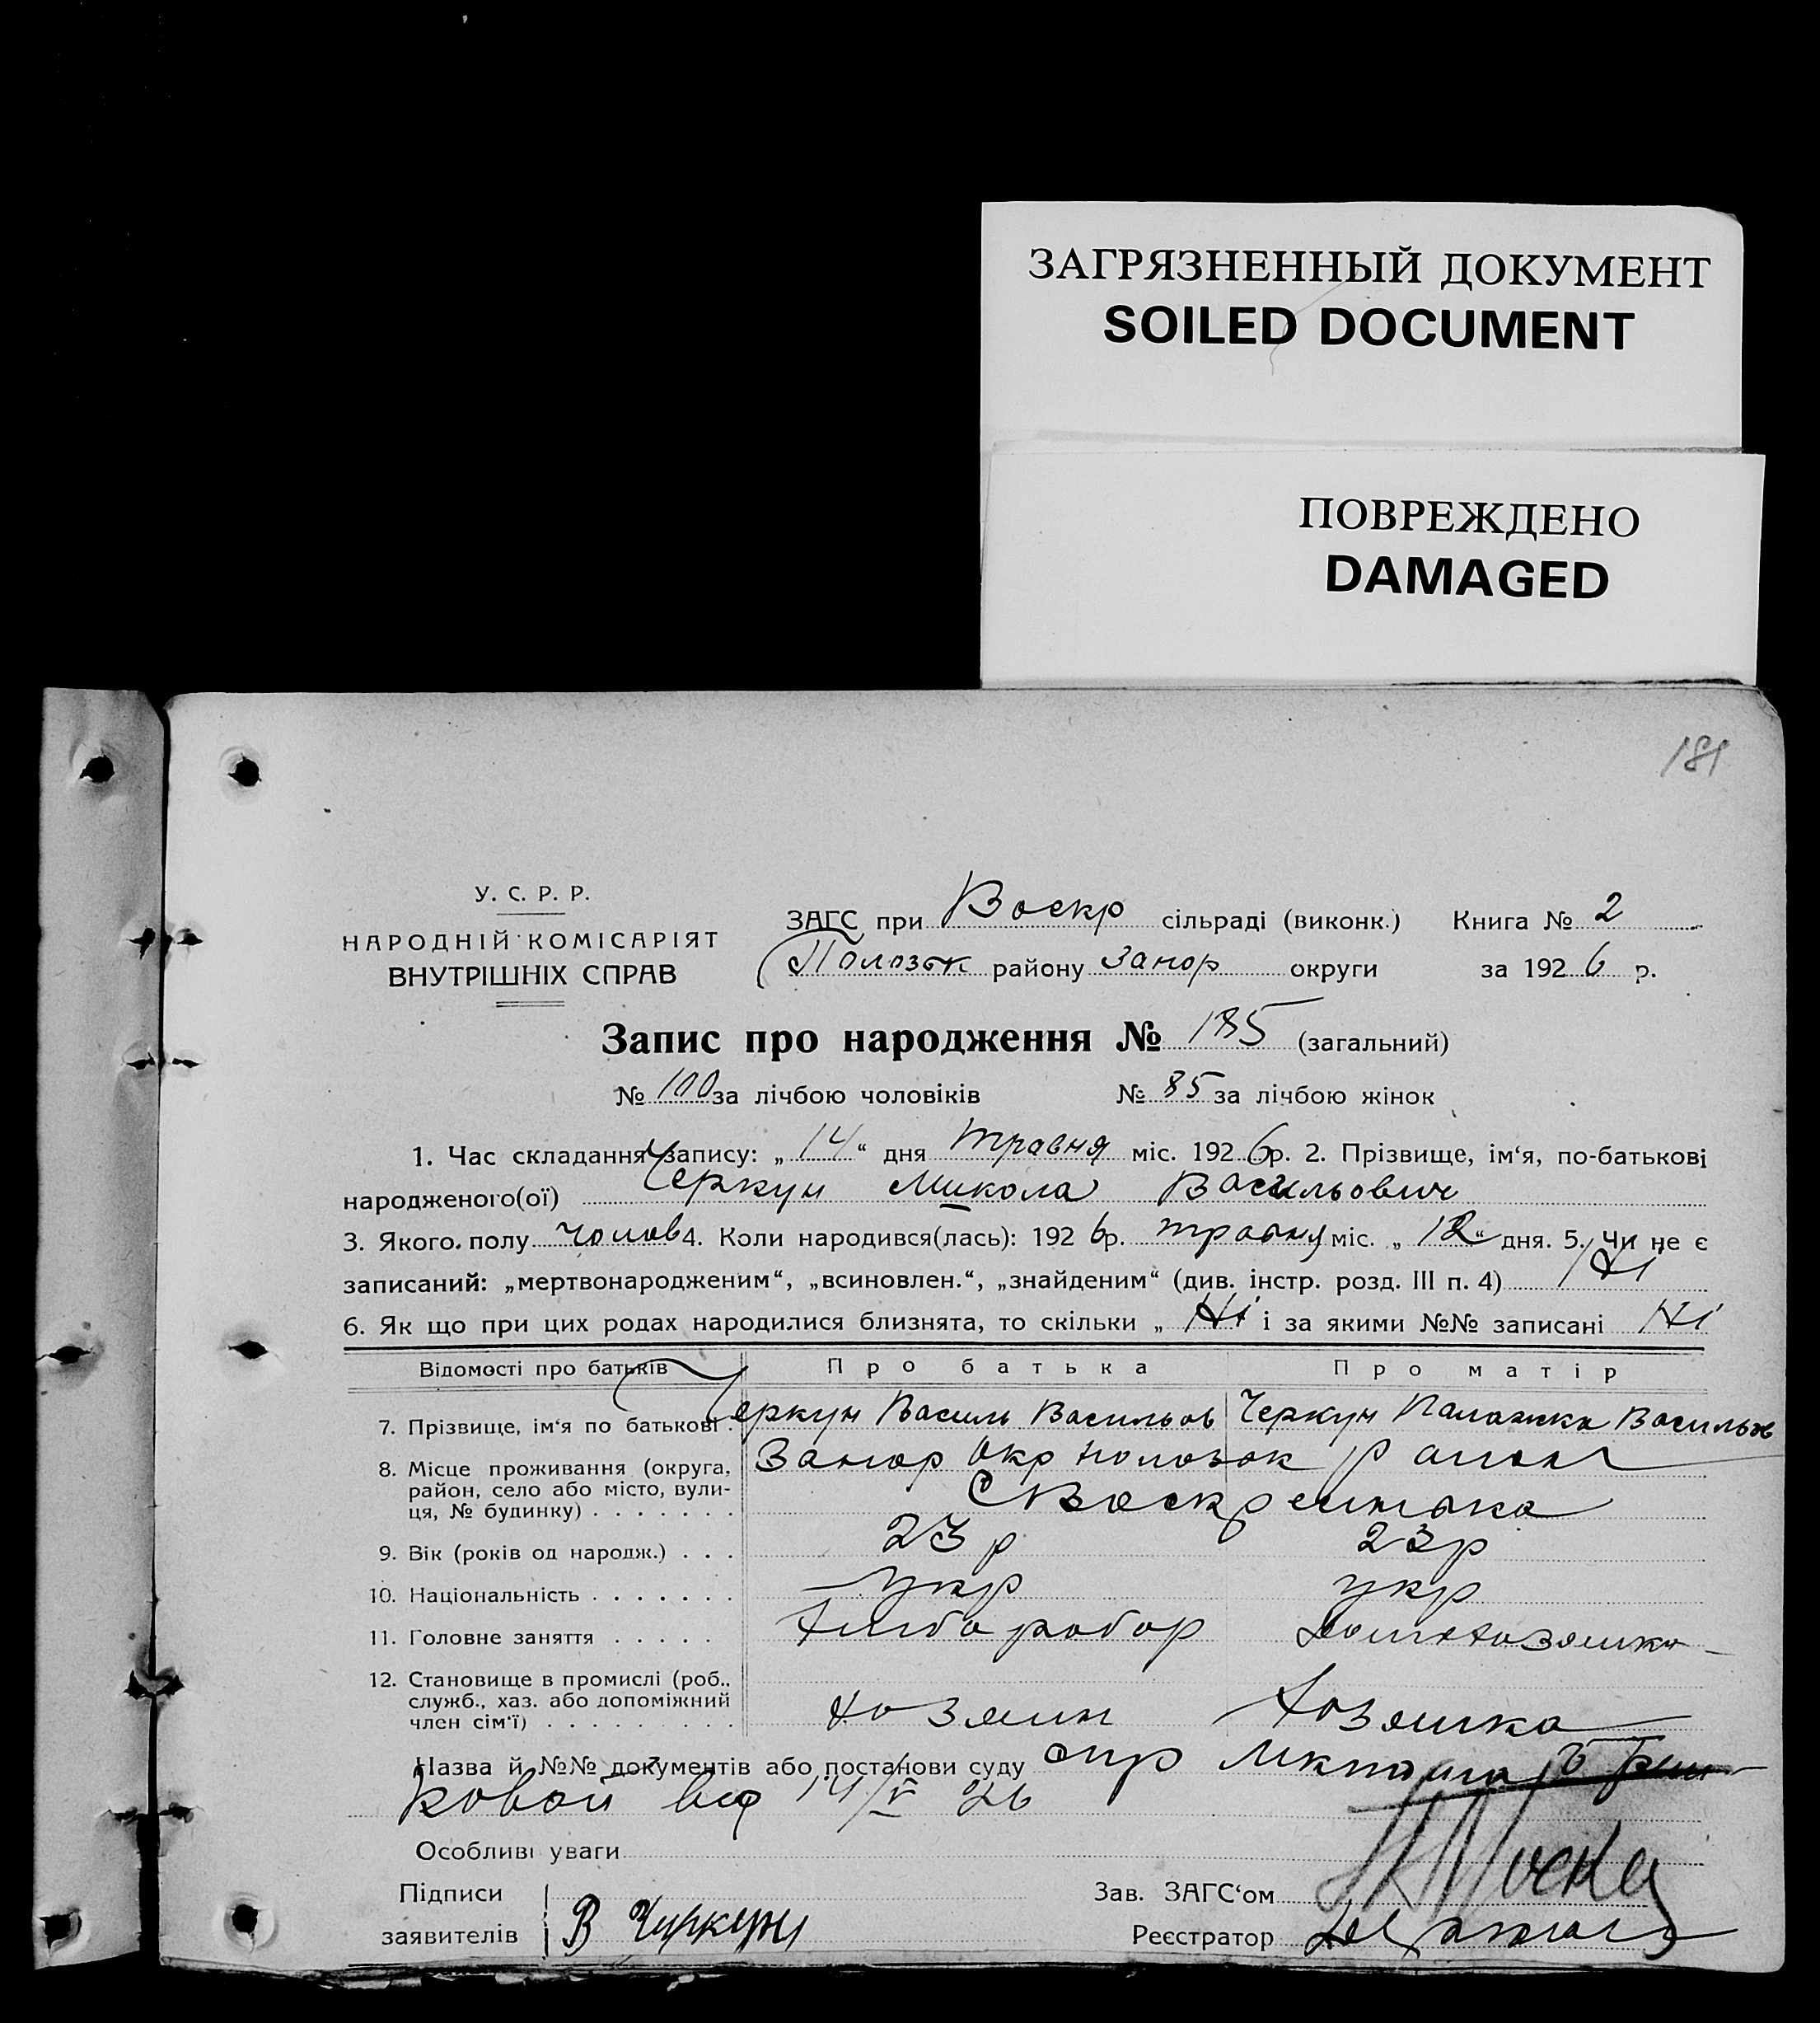 ЗАГРЯЗНЕННЫЙ ДОКУМЕНТ
SOILED DOCUMENT
ПОВРЕЖДЕНО
DAMAGED
181
У. С. Р. Р.
НАРОДНІЙ КОМІСАРІЯТ
ВНУТРІШНІХ СПРАВ
ЗАГС при Воскр сільраді (виконк.) Книга № 2
Полозьк району Запор округи за 1926 р.
Запис про народження № 185 (загальний)
№ 100 за лічбою чоловіків № 85 за лічбою жінок
1. Час складання запису: „14“ дня травня міс. 1926р. 2. Прізвище, ім‘я, по-батькові
народженого(ої) Черкун Микола Васильович
3. Якого полу чолов 4. Коли народився(лась): 1926р. травня міс. „12“ дня. 5. Чи не є
записаний: „мертвонародженим“, „всиновлен.“, „знайденим“ (див. інстр. розд. III п. 4) Ні
6. Як що при цих родах народилися близнята, то скільки „ Ні і за якими №№ записані Ні
Відомості про батьків Про батька Про матір
7. Прізвище, ім‘я по батькові. Черкун Василь Васильов Черкун Палажка Васильов
8. Місце проживання (округа, Запор Окр Полозьк район
район, село або місто, вули-
ця, № будинку) . . . . . . . С Воскресинька
9. Вік (років од народж.) . . . 23 р 23 р
10. Національність . . . . . . . укр укр
11. Головне заняття . . . . . Хлібороб
12. Становище в промислі (роб.,
служб., хаз. або допоміжний
член сім‘ї) . . . . . . . . . хозяин хозяйка
Назва й №№ документів або постанови суду
від 14/V 26
Особливі уваги
Підписи
заявителів В Чиркун
Зав. ЗАГС‘ом
Реєстратор